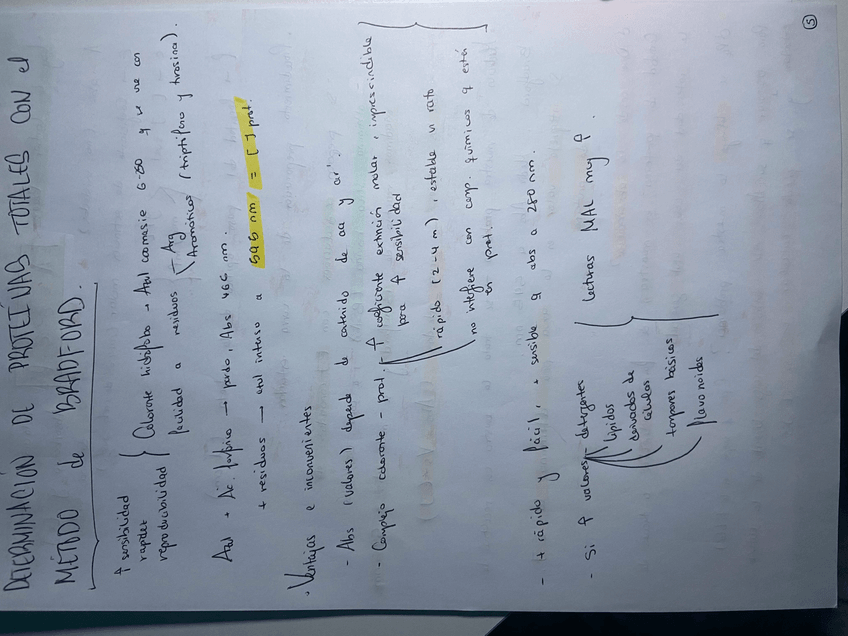 5
DETERMINACIÓN DE PROTEÍNAS TOTALES CON el
MÉTODO de BRADFORD.
↑ sensibilidad
rapidez
reproducibilidad
Colorante hidrófobo → Azul coomasie G-250 q se une con
facilidad a residuos Arg
Aromáticos (triptófano y tirosina).
Azul + Ac. fosfórico → pardo, Abs 466 nm.
+ residuos → azul intenso a 595 nm = [ ] prot.
· Ventajas e inconvenientes
- Abs (valores) depende de contenido de aa y ar'.
- Complejo colorante - prot. - ↑ coeficiente extinción molar, imprescindible
para ↑ sensibilidad
rápido (2-4 m), estable un rato
no interfiere con comp. químicos q está
en prot.
- + rápido y fácil, + sensible q abs a 280 nm.
- Si ↑ valores - detergentes
lípidos
derivados de
células
tampones básicos
flavonoides
lecturas MAL muy ↑.